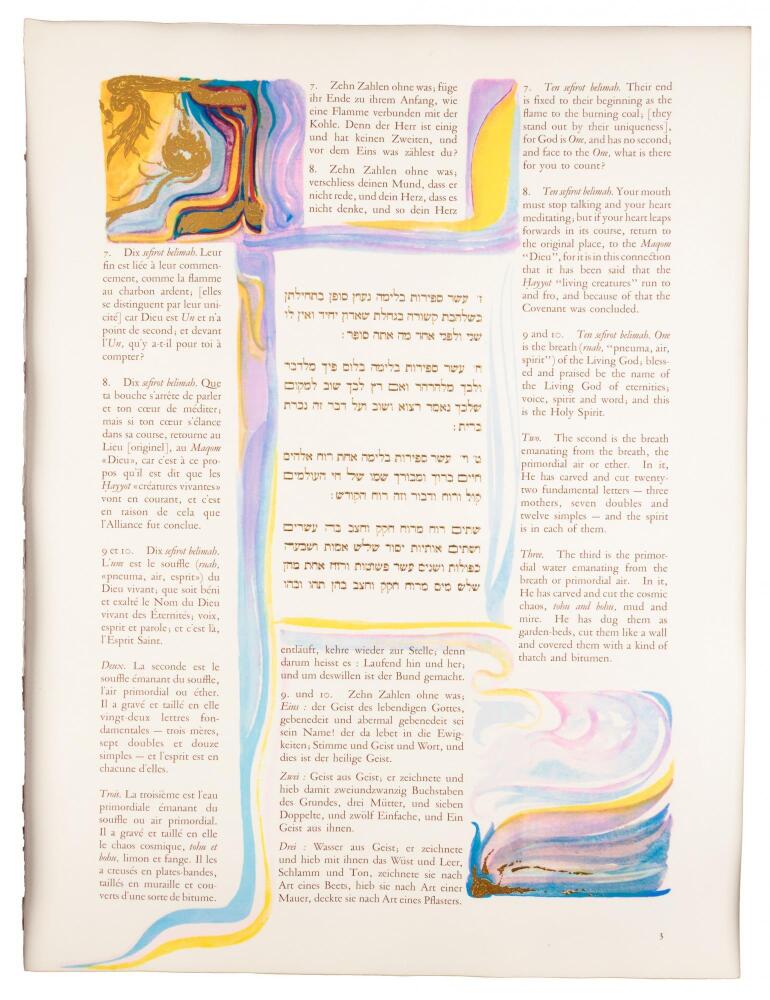 7. Dix sefirot belimah. Leur
fin est liée à leur commen-
cement, comme la flamme
au charbon ardent; [elles
se distinguent par leur uni-
cité] car Dieu est Un et n'a
point de second; et devant
l'Un, qu'y a-t-il pour toi à
compter?
8. Dix sefirot belimah. Que
ta bouche s'arrête de parler
et ton cœur de méditer;
mais si ton cœur s'élance
dans sa course, retourne au
Lieu [originel], au Maqom
«Dieu», car c'est à ce pro-
pos qu'il est dit que les
Ḥayyot «créatures vivantes»
vont en courant, et c'est
en raison de cela que
l'Alliance fut conclue.
9 et 10. Dix sefirot belimah.
L'une est le souffle (ruah,
«pneuma, air, esprit») du
Dieu vivant; que soit béni
et exalté le Nom du Dieu
vivant des Éternités; voix,
esprit et parole; et c'est là,
l'Esprit Saint.
Deux. La seconde est le
souffle émanant du souffle,
l'air primordial ou éther.
Il a gravé et taillé en elle
vingt-deux lettres fon-
damentales — trois mères,
sept doubles et douze
simples — et l'esprit est en
chacune d'elles.
Trois. La troisième est l'eau
primordiale émanant du
souffle ou air primordial.
Il a gravé et taillé en elle
le chaos cosmique, tohu et
bohu, limon et fange. Il les
a creusés en plates-bandes,
taillés en muraille et cou-
verts d'une sorte de bitume.
7. Zehn Zahlen ohne was; füge
ihr Ende zu ihrem Anfang, wie
eine Flamme verbunden mit der
Kohle. Denn der Herr ist einig
und hat keinen Zweiten, und
vor dem Eins was zählest du?
8. Zehn Zahlen ohne was;
verschliess deinen Mund, dass er
nicht rede, und dein Herz, dass es
nicht denke, und so dein Herz
ז׳ עשר ספירות בלימה נעוץ סופן בתחילתן
כשלהבת קשורה בגחלת שאדון יחיד ואין לו
שני ולפני אחד מה אתה סופר :
ח׳ עשר ספירות בלימה בלום פיך מלדבר
ולבך מלהרהר ואם רץ לבך שוב למקום
שלכך נאמר רצוא ושוב ועל דבר זה נכרת
ברית :
ט׳ י׳ עשר ספירות בלימה אחת רוח אלהים
חיים ברוך ומבורך שמו של חי העולמים
קול ורוח ודבור וזה רוח הקודש :
שתים רוח מרוח חקק וחצב בה עשרים
ושתים אותיות יסוד שלש אמות ושבעה
כפולות ושנים עשר פשוטות ורוח אחת מהן
שלש מים מרוח חקק וחצב בהן תהו ובהו
entläuft, kehre wieder zur Stelle; denn
darum heisst es : Laufend hin und her;
und um deswillen ist der Bund gemacht.
9. und 10. Zehn Zahlen ohne was;
Eins : der Geist des lebendigen Gottes,
gebenedeit und abermal gebenedeit sei
sein Name! der da lebet in die Ewig-
keiten; Stimme und Geist und Wort, und
dies ist der heilige Geist.
Zwei : Geist aus Geist; er zeichnete und
hieb damit zweiundzwanzig Buchstaben
des Grundes, drei Mütter, und sieben
Doppelte, und zwölf Einfache, und Ein
Geist aus ihnen.
Drei : Wasser aus Geist; er zeichnete
und hieb mit ihnen das Wüst und Leer,
Schlamm und Ton, zeichnete sie nach
Art eines Beets, hieb sie nach Art einer
Mauer, deckte sie nach Art eines Pflasters.
7. Ten sefirot belimah. Their end
is fixed to their beginning as the
flame to the burning coal; [they
stand out by their uniqueness],
for God is One, and has no second;
and face to the One, what is there
for you to count?
8. Ten sefirot belimah. Your mouth
must stop talking and your heart
meditating; but if your heart leaps
forwards in its course, return to
the original place, to the Maqom
“Dieu”, for it is in this connection
that it has been said that the
Ḥayyot “living creatures” run to
and fro, and because of that the
Covenant was concluded.
9 and 10. Ten sefirot belimah. One
is the breath (ruah, “pneuma, air,
spirit”) of the Living God; bless-
ed and praised be the name of
the Living God of eternities;
voice, spirit and word; and this
is the Holy Spirit.
Two. The second is the breath
emanating from the breath, the
primordial air or ether. In it,
He has carved and cut twenty-
two fundamental letters — three
mothers, seven doubles and
twelve simples — and the spirit
is in each of them.
Three. The third is the primor-
dial water emanating from the
breath or primordial air. In it,
He has carved and cut the cosmic
chaos, tohu and bohu, mud and
mire. He has dug them as
garden-beds, cut them like a wall
and covered them with a kind of
thatch and bitumen.
3